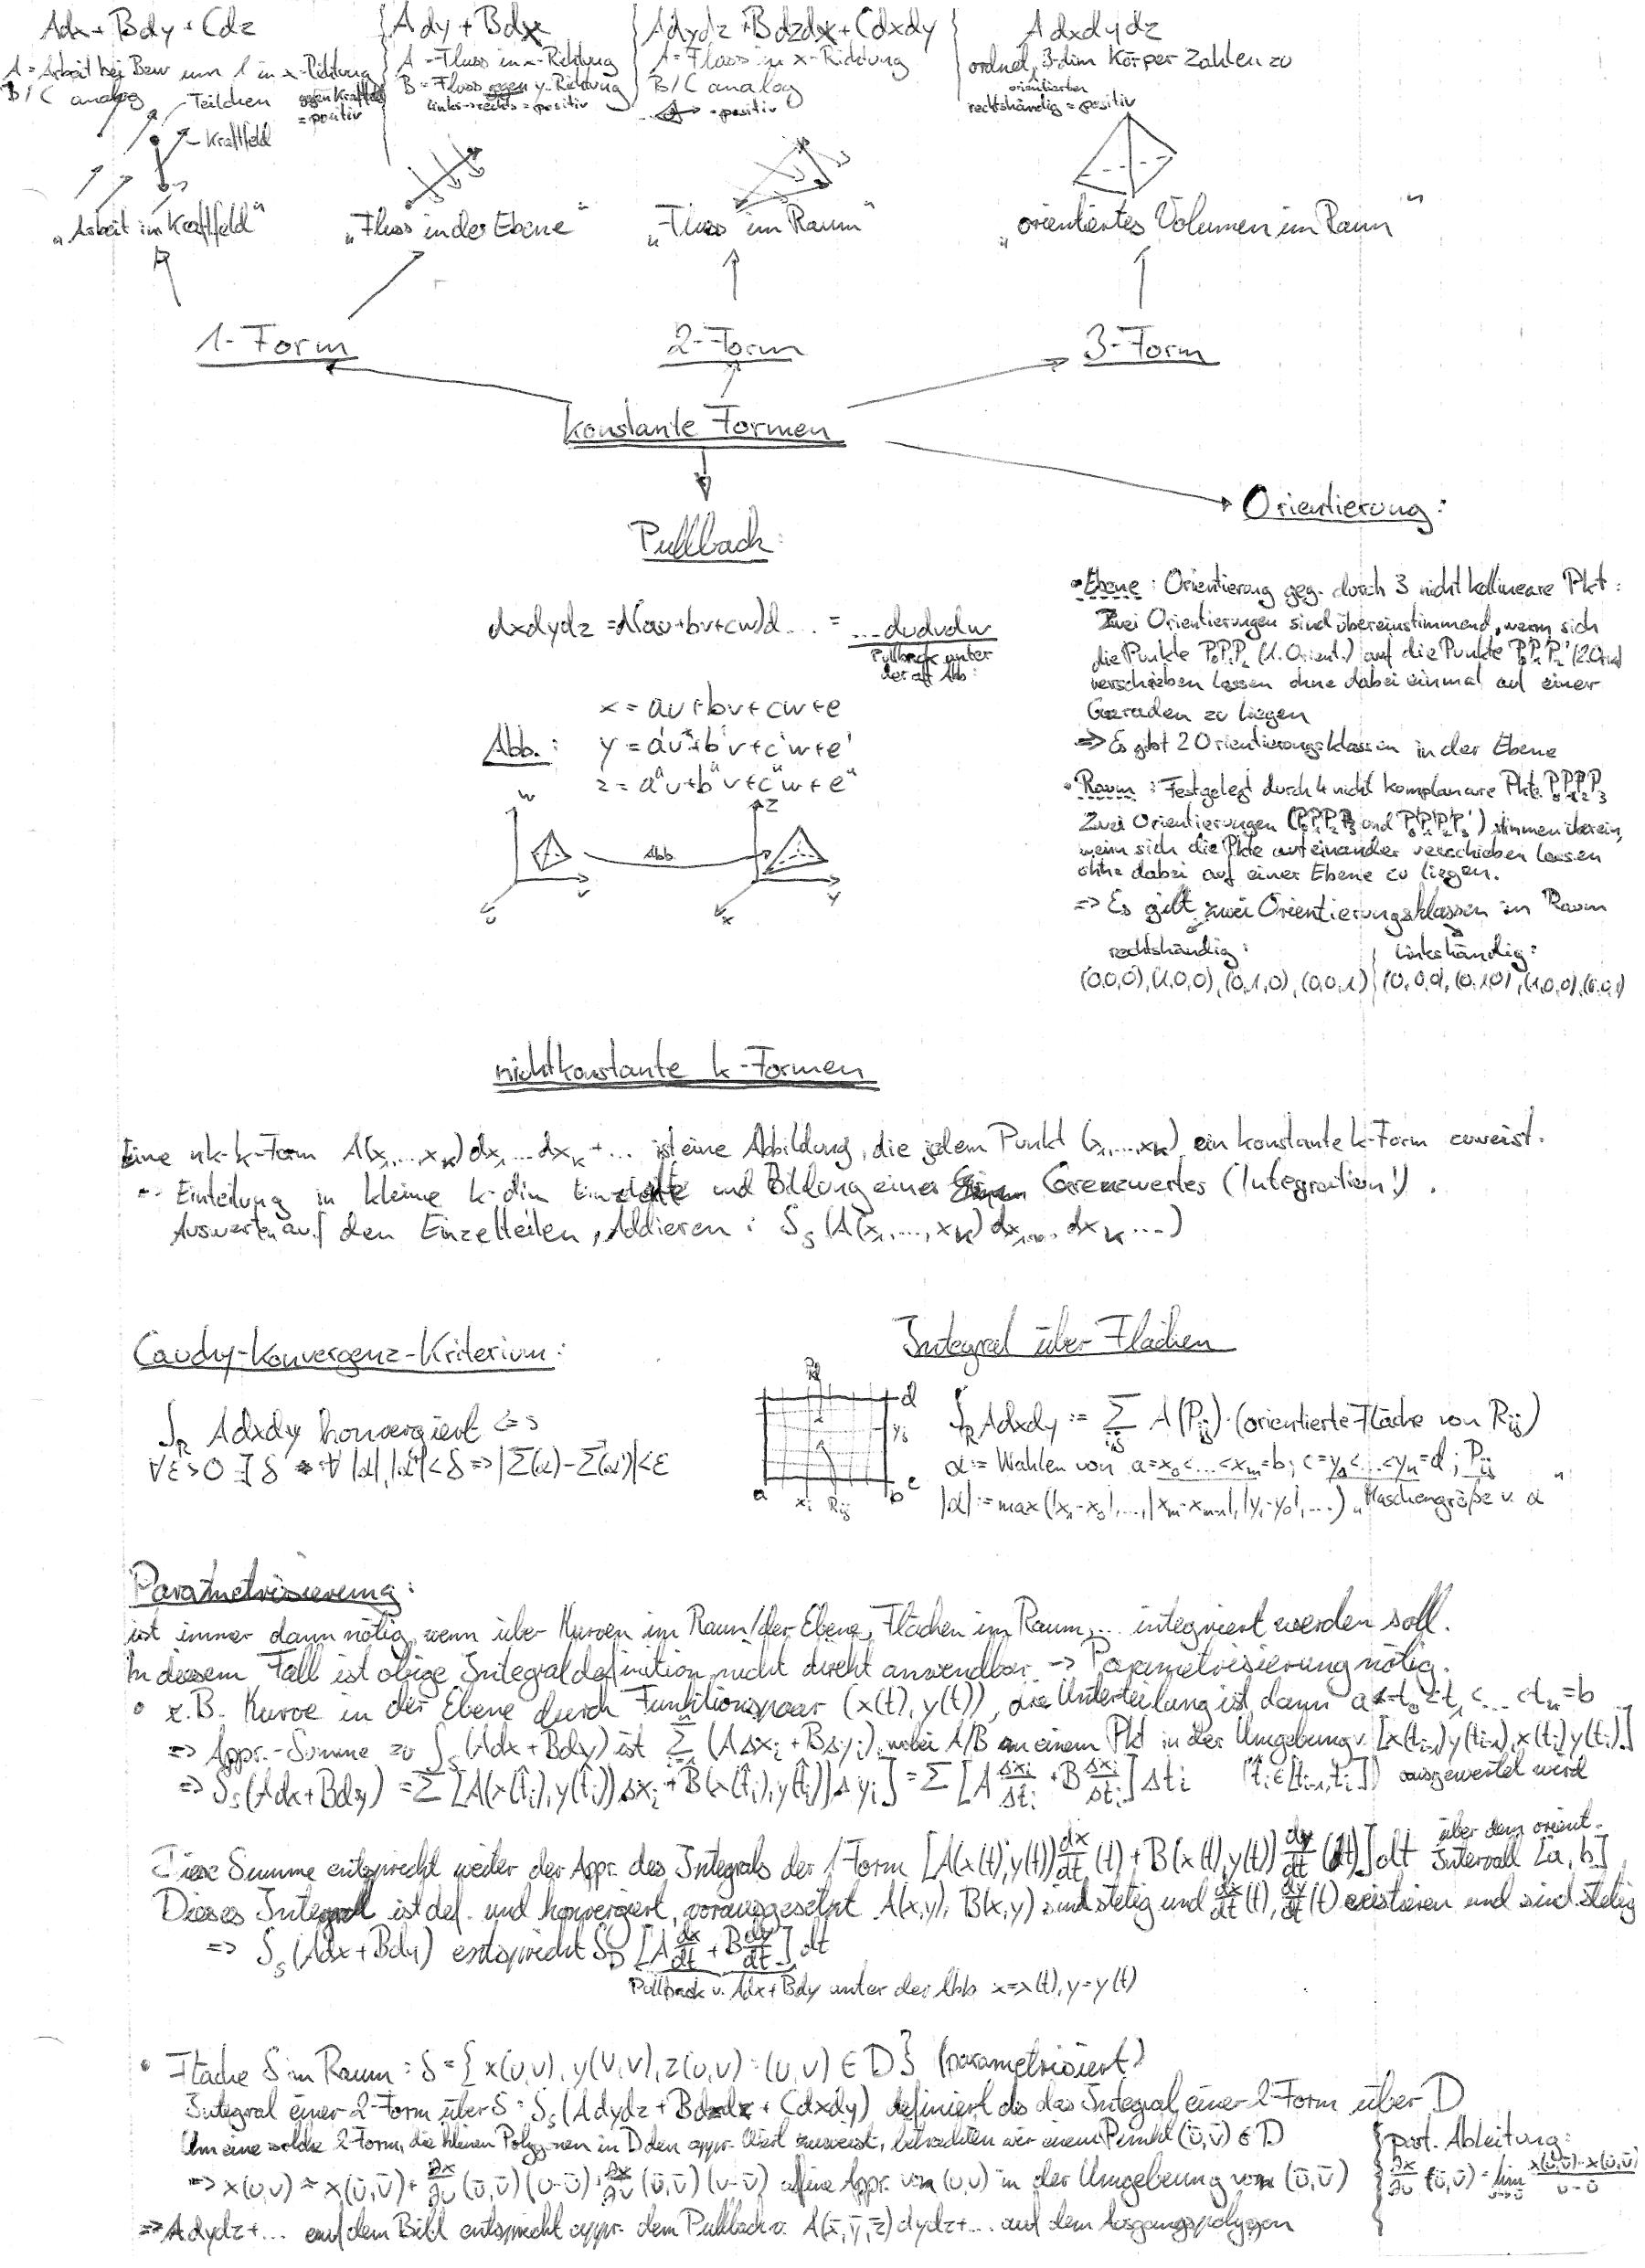 Adx + Bdy + Cdz
A = Arbeit bei Bew um 1 in x-Richtung
B/C analog
gegen Kraftfeld = positiv
Teilchen
Kraftfeld
„Arbeit im Kraftfeld"
Ady + Bdx
A = Fluss in x-Richtung
B = Fluss gegen y-Richtung
links→rechts = positiv
„Fluss in der Ebene"
Adydz + Bdzdx + Cdxdy
A = Fluss in x-Richtung
B/C analog
= positiv
„Fluss im Raum"
Adxdydz
ordnet 3-dim Körper Zahlen zu
orientierten
rechtshändig = positiv
„orientiertes Volumen im Raum"
1-Form
2-Form
3-Form
konstante Formen
Pullback:
dxdydz = d(au+bv+cw)d.... = ... dudvdw
Pullback unter
der aff Abb:
Abb.:
x = au+bv+cw+e
y = a'u+b'v+c'w+e'
z = a"u+b"v+c"w+e"
w
v
u
Abb.
z
y
x
Orientierung:
• Ebene: Orientierung geg. durch 3 nicht kollineare Pkt:
Zwei Orientierungen sind übereinstimmend, wenn sich
die Punkte P₀P₁P₂ (1. Orient.) auf die Punkte P₀'P₁'P₂' (2. Orient)
verschieben lassen ohne dabei einmal auf einer
Geraden zu liegen
=> Es gibt 2 Orientierungsklassen in der Ebene
• Raum: Festgelegt durch 4 nicht komplanare Pkte P₀P₁P₂P₃
Zwei Orientierungen (P₀P₁P₂P₃ und P₀'P₁'P₂'P₃') stimmen überein,
wenn sich die Pkte aufeinander verschieben lassen
ohne dabei auf einer Ebene zu liegen.
=> Es gibt zwei Orientierungsklassen im Raum
rechtshändig:
(0,0,0), (1,0,0), (0,1,0), (0,0,1)
linkshändig:
(0,0,0), (0,1,0), (1,0,0), (0,0,1)
nichtkonstante k-Formen
Eine nk-k-Form A(x₁,...,xₖ)dx₁...dxₖ+... ist eine Abbildung, die jedem Punkt (x₁,...,xₖ) ein konstante k-Form zuweist.
Einteilung in kleine k-dim und Bildung eines Grenzwertes (Integration!).
Auswerten auf den Einzelteilen, Addieren: ∫ₛ(A(x₁,...,xₖ)dx₁...dxₖ...)
Cauchy-Konvergenz-Kriterium:
∫_R Adxdy konvergiert <=>
∀ε>0 ∃δ ∀|α|,|α'|<δ => |Σ(α)-Σ(α')|<ε
Integral über Flächen
d
yⱼ
c
a
xᵢ
Rᵢⱼ
b
∫_R Adxdy := Σᵢⱼ A(Pᵢⱼ)·(orientierte Fläche von Rᵢⱼ)
α := Wahlen von a=x₀<...<xₘ=b; c=y₀<...<yₙ=d; Pᵢⱼ
|α| := max(|x₁-x₀|,...,|xₘ-xₘ₋₁|,|y₁-y₀|,...) „Maschengröße v. α"
Parametrisierung:
ist immer dann nötig, wenn über Kurven im Raum/der Ebene, Flächen im Raum,... integriert werden soll.
In diesem Fall ist obige Integraldefinition nicht direkt anwendbar -> Parametrisierung nötig.
• z.B. Kurve in der Ebene durch Funktionspaar (x(t), y(t)), die Unterteilung ist dann a=t₀<t₁<...<tₙ=b
=> Appr.-Summe zu ∫ₛ(Adx+Bdy) ist Σ(AΔxᵢ+BΔyᵢ), wobei A/B an einem Pkt in der Umgebung v. [x(tᵢ₋₁)y(tᵢ₋₁), x(tᵢ)y(tᵢ)]
=> ∫ₛ(Adx+Bdy) = Σ[A(x(t̂ᵢ),y(t̂ᵢ))Δxᵢ + B(x(t̂ᵢ),y(t̂ᵢ))Δyᵢ] = Σ[A Δxᵢ/Δtᵢ + B Δxᵢ/Δtᵢ]Δtᵢ (t̂ᵢ∈[tᵢ₋₁,tᵢ]) ausgewertet wird
Diese Summe entspricht weiter der Appr. des Integrals der 1-Form [A(x(t),y(t)) dx/dt (t) + B(x(t),y(t)) dy/dt (t)]dt über dem orient. Intervall [a,b]
Dieses Integral ist def. und konvergiert, vorausgesetzt A(x,y), B(x,y) sind stetig und dx/dt (t), dy/dt (t) existieren und sind stetig
=> ∫ₛ(Adx+Bdy) entspricht ∫_D [A dx/dt + B dy/dt]dt
Pullback v. Adx+Bdy unter der Abb x=x(t), y=y(t)
• Fläche S im Raum: S={x(u,v), y(u,v), z(u,v): (u,v)∈D} (parametrisiert)
Integral einer 2-Form über S: ∫ₛ(Adydz+Bdzdx+Cdxdy) definiert als das Integral einer 2-Form über D
Um eine solche 2-Form, die kleinen Polygonen in D den appr. Wert zuweist, betrachten wir einen Punkt (ū,v̄)∈D
=> x(u,v) ≈ x(ū,v̄) + ∂x/∂u (ū,v̄)(u-ū) + ∂x/∂v (ū,v̄)(v-v̄) affine Appr. von (u,v) in der Umgebung von (ū,v̄)
part. Ableitung:
∂x/∂u (ū,v̄) = lim u→ū x(u,v̄)-x(ū,v̄)/u-ū
=> Adydz+... auf dem Bild entspricht appr. dem Pullback v. A(x̄,ȳ,z̄)dydz+... auf dem Ausgangspolygon